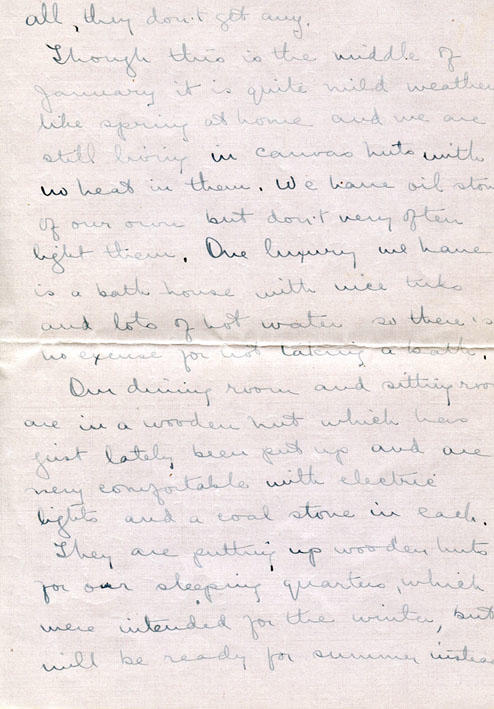 all, they don't get any.
Though this is the middle of
January it is quite mild weather
like spring at home and we are
still living in canvas huts with
no heat in them. We have oil stov
of our own but don't very often
light them. One luxury we have
is a bath house with nice tubs
and lots of hot water so there's
no excuse for not taking a bath.
Our dining room and sitting roo
are in a wooden hut which has
just lately been put up and are
very comfortable with electric
lights and a coal stove in each.
They are putting up wooden huts
for our sleeping quarters, which
were intended for the winter, but
will be ready for summer instead